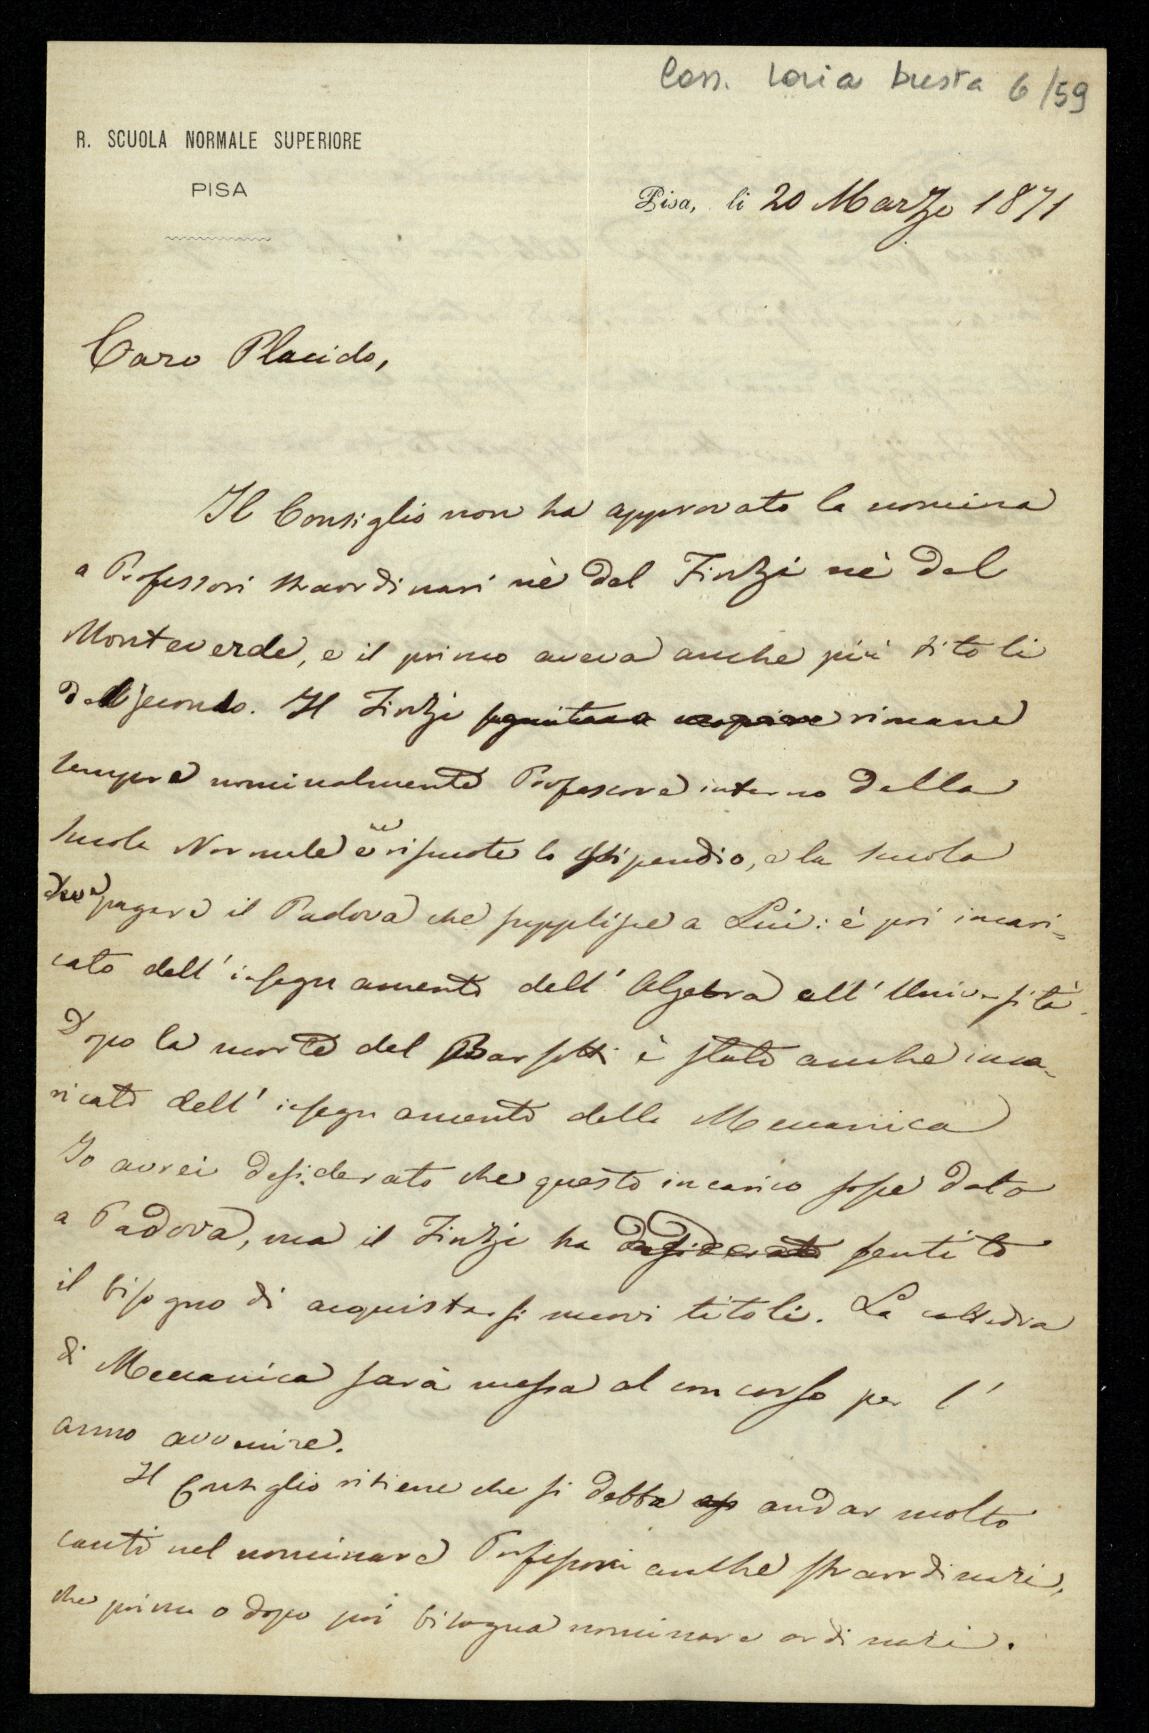 Cass. Loria busta 6/59
R. SCUOLA NORMALE SUPERIORE
PISA
Pisa, li 20 Marzo 1871
Caro Placido,
Il Consiglio non ha approvato la nomina
a Professori straordinari nè del Finzi nè del
Monteverde, e il primo aveva anche più titoli
del secondo. Il Finzi seguitava rimane
sempre nominalmente Professore interno della
Scuola Normale e ne riscuote lo stipendio, e la Scuola
deve pagare il Padova che supplisce a Lui: è poi incari=
cato dell'insegnamento dell'Algebra all'Università.
Dopo la morte del Barsotti è stato anche inca-
ricato dell'insegnamento della Meccanica
Io avrei desiderato che questo incarico fosse dato
a Padova, ma il Finzi ha desiderato sentito
il bisogno di acquistarsi nuovi titoli. La cattedra
di Meccanica sarà messa al concorso per l'
anno avvenire.
Il Consiglio ritiene che si debba andar molto
cauti nel nominare Professori anche straordinari,
che prima o dopo poi bisogna nominare ordinari.